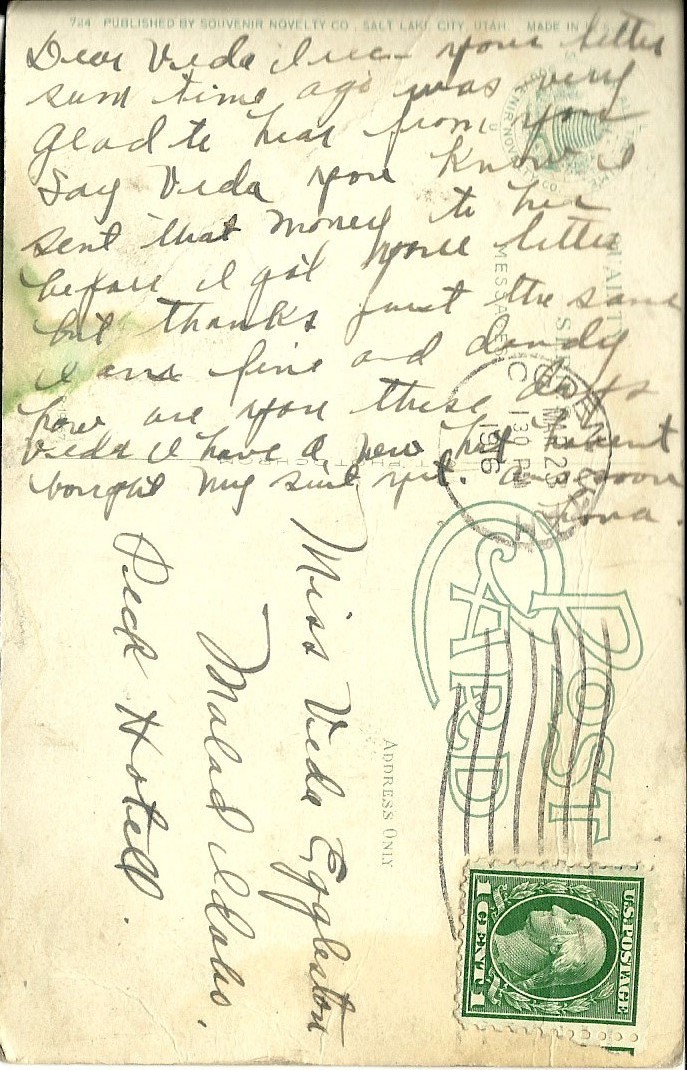 724 PUBLISHED BY SOUVENIR NOVELTY CO., SALT LAKE CITY, UTAH. MADE IN U.S.
Dear Veda I rec- your letter
sum time ago was very
glad to hear from you
Say Veda you know I
sent that money to her
before I got youre letter
but thanks just the same
I am fine and dandy
how are you these days
Veda I have a new hat havent
bought my suit yet. ans soon
MESSAGE
MAR 28
1 30 PM
1916
POST
CARD
ADDRESS ONLY
U.S. POSTAGE
1 CENT 1
Miss Veda Eggleston
Malad Idaho.
Peck Hotell.